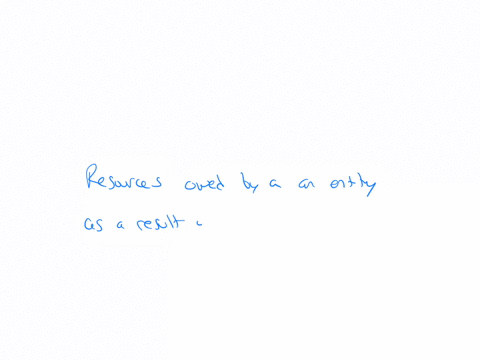 Resources owed by a an entity
as a result